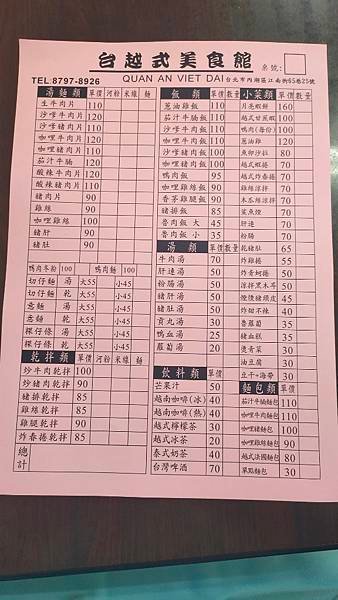 台越式美食館
桌號:
TEL:8797-8926 QUAN AN VIET DAI 台北市內湖區江南街65巷25號
湯麵類 單價 河粉 米線 麵
生牛肉片 110
沙嗲牛肉片 120
沙嗲豬肉片 110
咖哩牛肉片 120
咖哩豬肉片 110
茄汁牛腩 120
酸辣牛肉片 120
酸辣豬肉片 110
豬肉片 90
雞絲 90
咖哩雞絲 90
豬肝 90
豬肚 90
鴨肉冬粉 100 鴨肉麵 100
切仔麵 湯 大55 小45
切仔麵 乾 大55 小45
意麵 湯 大55 小45
意麵 乾 大55 小45
粿仔條 湯 大55 小45
粿仔條 乾 大55 小45
乾拌類 單價 河粉 米線 麵
炒牛肉乾拌 100
炒豬肉乾拌 90
豬排乾拌 85
雞絲乾拌 85
雞腿乾拌 90
炸春捲乾拌 85
總計
飯類 單價 數量
蔥油雞飯 110
茄汁牛腩飯 110
咖哩牛肉飯 110
沙嗲牛肉飯 110
沙嗲豬肉飯 100
咖哩豬肉飯 100
鴨肉飯 95
咖哩雞絲飯 90
香茅雞腿飯 90
豬排飯 85
魯肉飯 大 45
魯肉飯 小 35
湯類 單價 數量
牛肉湯 70
肝連湯 50
粉腸湯 50
豬肝湯 50
豬肚湯 50
貢丸湯 30
鴨血湯 30
蘿蔔湯 20
飲料類 單價 數量
芒果汁 50
越南咖啡(冰) 40
越南咖啡(熱) 40
越式檸檬茶 30
越式冰茶 20
泰式奶茶 40
台灣啤酒 70
小菜類 單價 數量
月亮蝦餅 160
越式甘蔗蝦 100
鴨肉(每份) 100
蔥油雞 120
魚卵沙拉 80
越式蝦捲 70
越式炸春捲 70
雞絲涼拌 70
木瓜絲涼拌 70
鯊魚煙 70
肝連 70
粉腸 70
乾豬肚 65
炸雞捲 55
炸香蚵捲 50
涼拌黑木耳 50
煙燻豬頭皮 45
炸甜不辣 40
魯蘿蔔 35
豬血糕 35
燙青菜 30
油豆腐 30
豆干+海帶 30
麵包類 單價
茄汁牛腩麵包 110
咖哩牛肉麵包 110
咖哩豬麵包 100
咖哩雞絲麵包 90
越式法國麵包 80
單點麵包 30